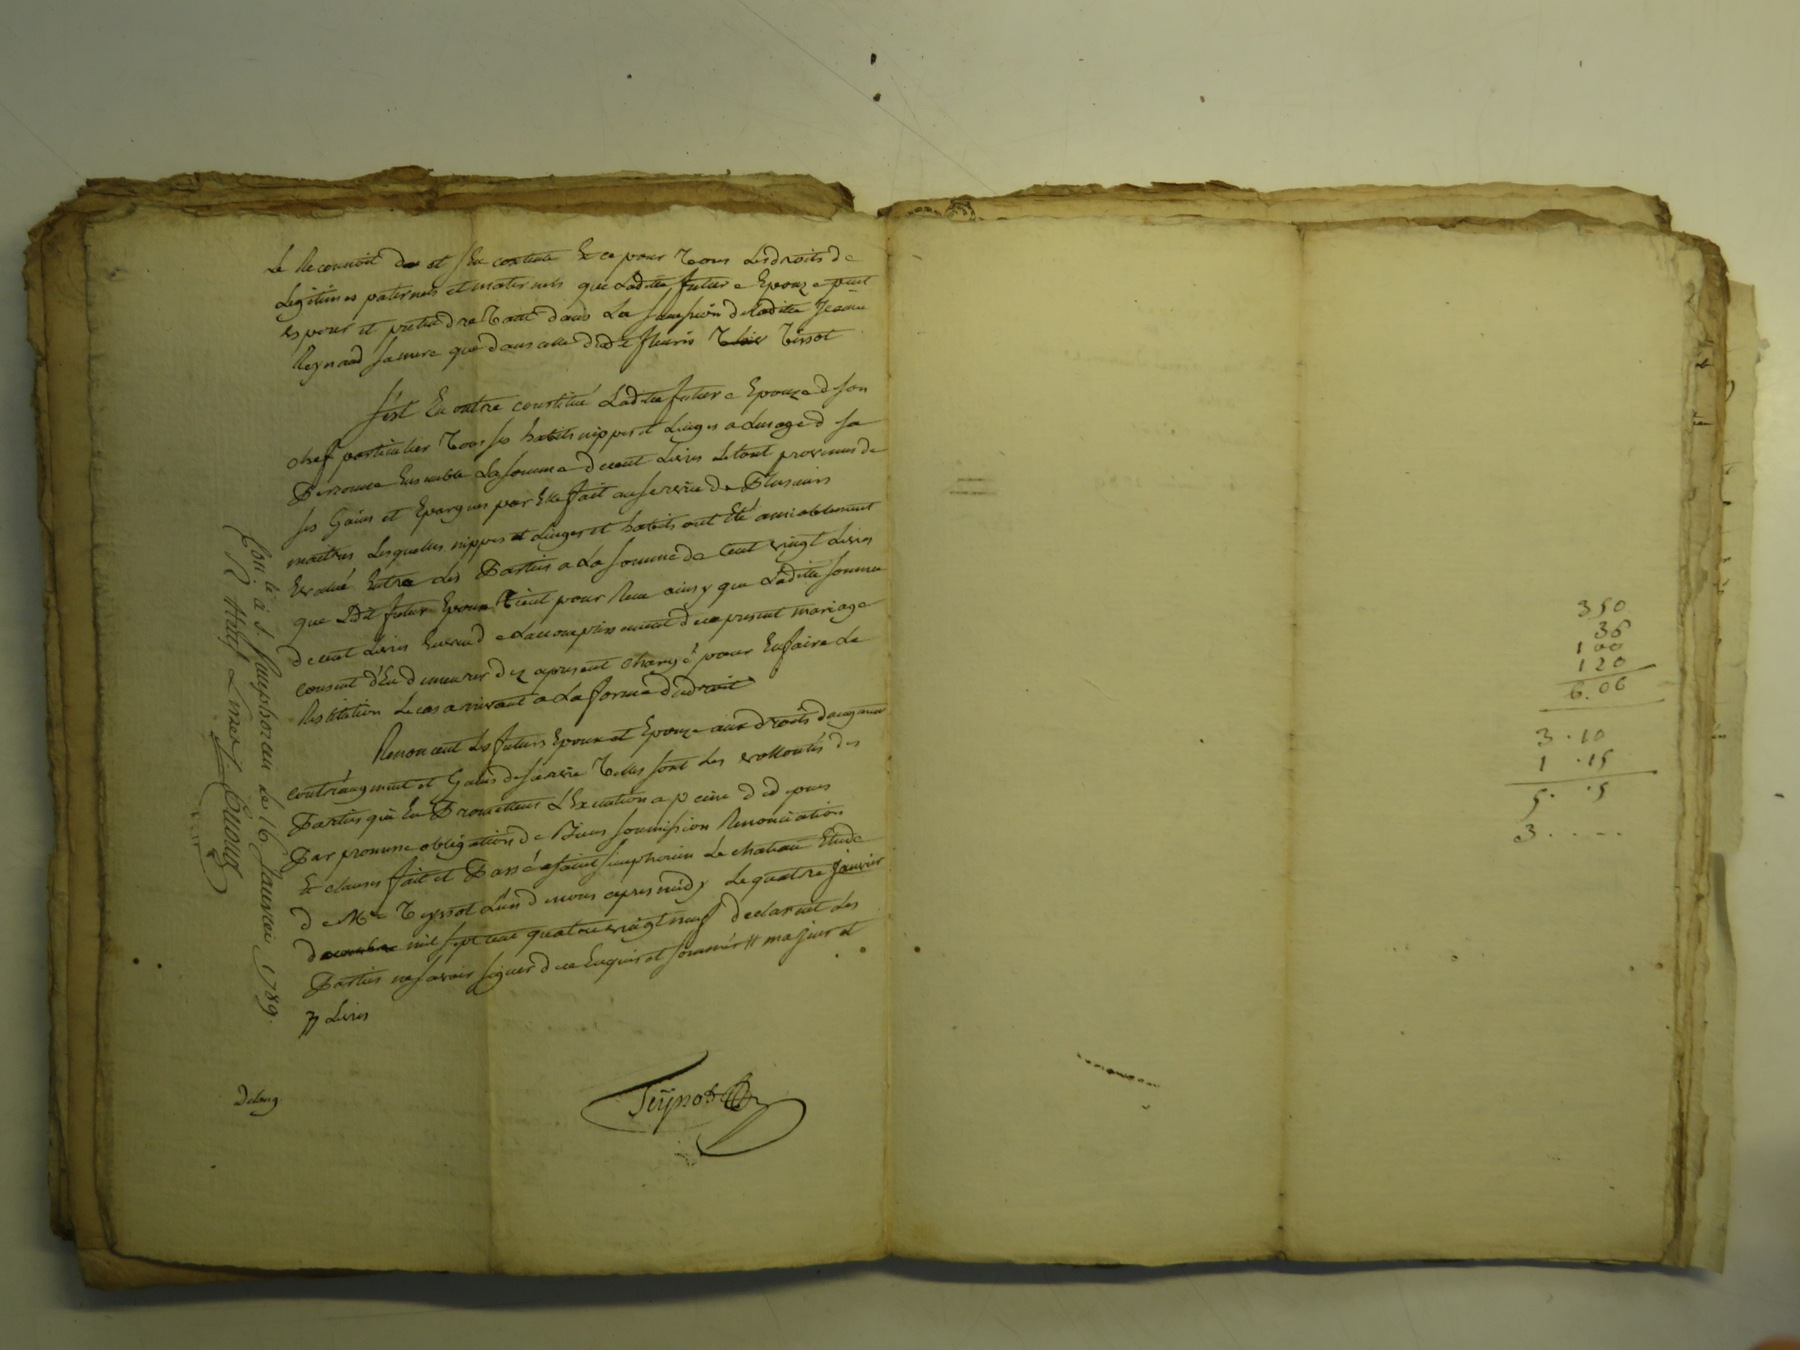 Le Reconnoit de et s'en contente Et ce pour tous Les droits de
Legitimes paternels et maternels que Laditte future Epouze peut
Esperer et pretendre tant dans La succession de Laditte Jeanne
Reynaud sa mere que dans celle dudt fleuris Tissot
s'est En outre constitué Laditte future Epouze de son
chef particulier tous ses habits nippes et Linges a Lusage de sa
Personne Ensemble La somme de cent Livres Le tout provenus de
ses Gains et Epargnes par Elle fait au service de Plusieurs
maitres Lesquelles nippes et Linges et habits ont Eté amiablement
Evalué Entre Les Parties a La somme de Cent vingt Livres
que Ledt futur Epoux tient pour Recu ainsy que Laditte somme
de cent Livres En vue de Laccomplissement du present mariage
consent d'En demeurer dez apresent chargé pour En faire La
Restitution Le cas arrivant a La forme du droit
Renoncent Les futurs Epoux et Epouze aux droits daugment
contr'augment et Gains de survie telles sont Les vollontés des
Parties qui En Promettent L'Execution a peine de depens
Par promesse obligation de Biens soumission Renonciation
Et clauses fait et Passé a saint simphorien Le chateau Etude
de Me Teyssot L'un de nous apres midy Le quatre Janvier
mil sept cent quatre vingt neuf declarant Les
Parties ne savoir signer de ce Enquis et sommés # majeur et
# Livres
Teyssot
Delong
Con.lé à S. Simphorien le 16 Janvier 1789.
R. Huit Livres
350
36
100
120
6.06
3 . 10
1 . 15
5 . . 5
3 . . . .